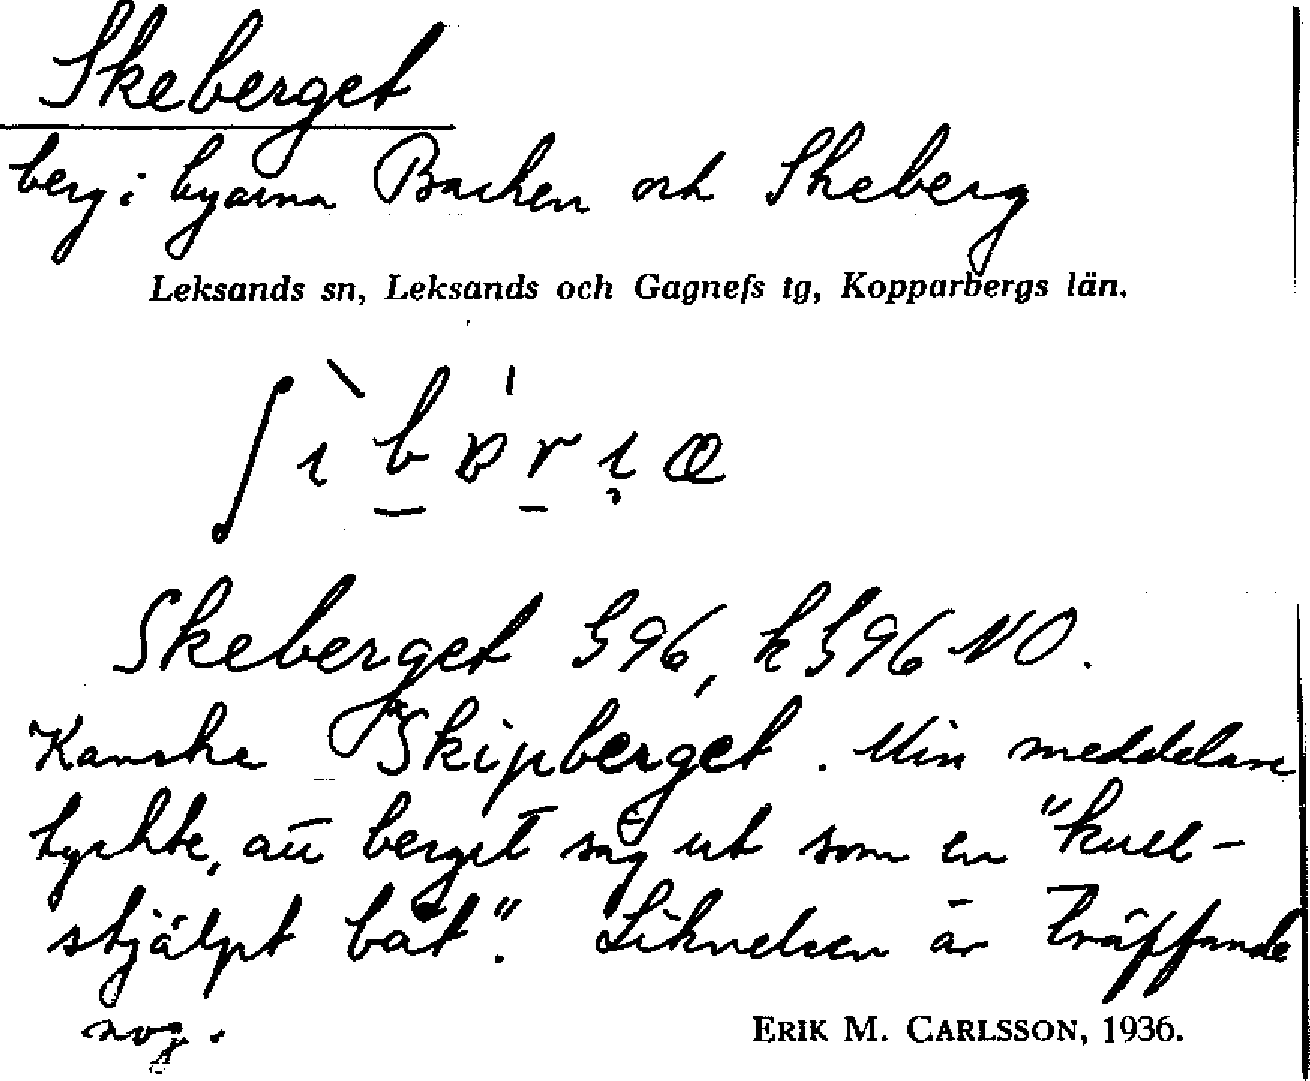 Skeberget
berg i byarna Backen och Skeberg
Leksands sn, Leksands och Gagnefs tg, Kopparbergs län.
Skeberget G 96, k G 96 NO.
Kanske Skipberget. Min meddelare
tyckte, att berget såg ut som en "kull-
stjälpt båt". Liknelsen är träffande
nog.
ERIK M. CARLSSON, 1936.